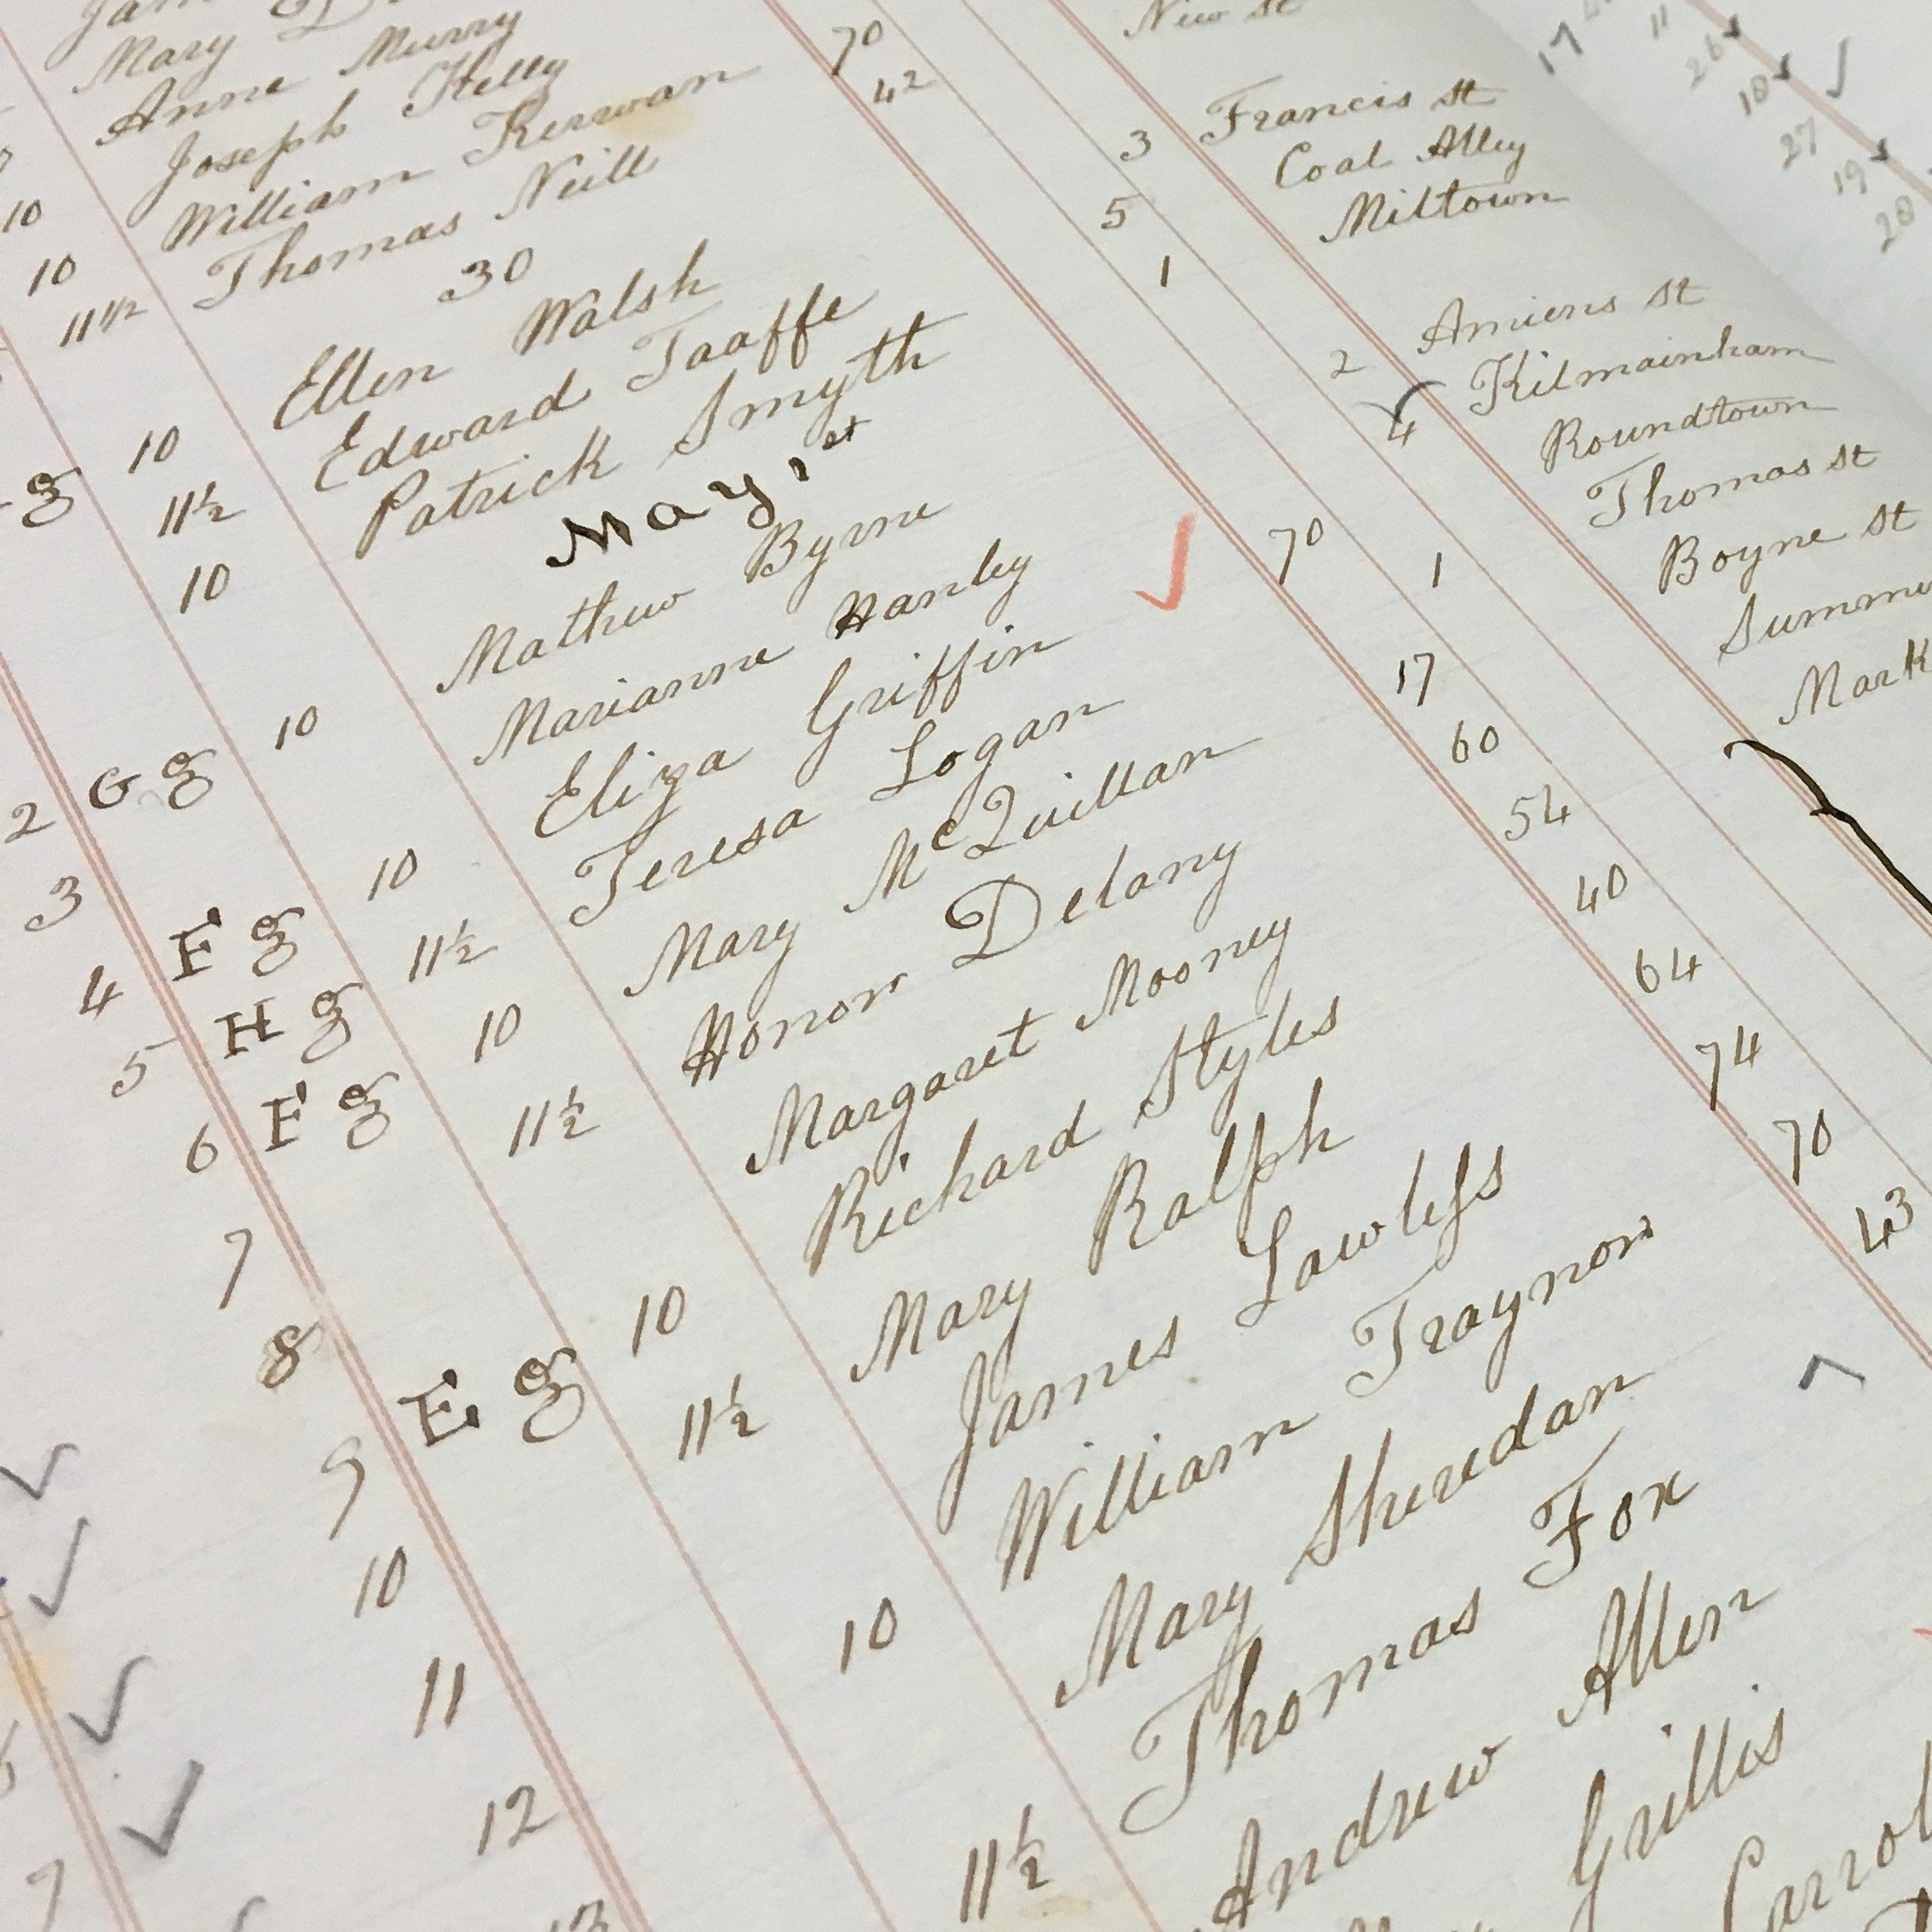 Mary
Anne Murry
10 Joseph Kelly
10 William Kerwan
11½ Thomas Neill
30
g 10 Ellen Walsh
11½ Edward Taaffe
10 Patrick Smyth
May 1st
2 G g 10 Mathew Byrne
3 Marianne Hanley
4 E g 10 Eliza Griffin
5 H g 11½ Teresa Logan
6 E g 10 Mary McQuillan
7 11½ Honor Delany
8 Margaret Mooney
9 E g 10 Richard Styles
10 11½ Mary Ralph
11 James Lawless
12 10 William Traynor
13 Mary Sheridan
11½ Thomas Fox
Andrew Allen
Grillis
Carrol
70
42
3
5
1
2
4
70
1
17
60
54
40
64
74
70
43
New st
Francis st
Coal Alley
Miltown
Amiens st
Kilmainham
Roundtown
Thomas st
Boyne st
Summe
Mark
17
11
26
18
27
19
20
7